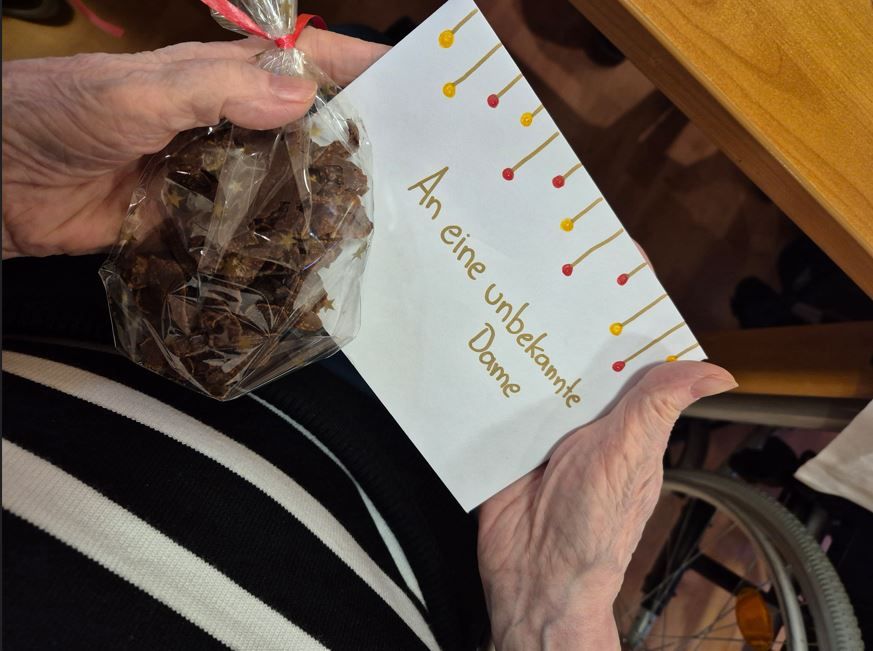 An eine unbekannte
Dame